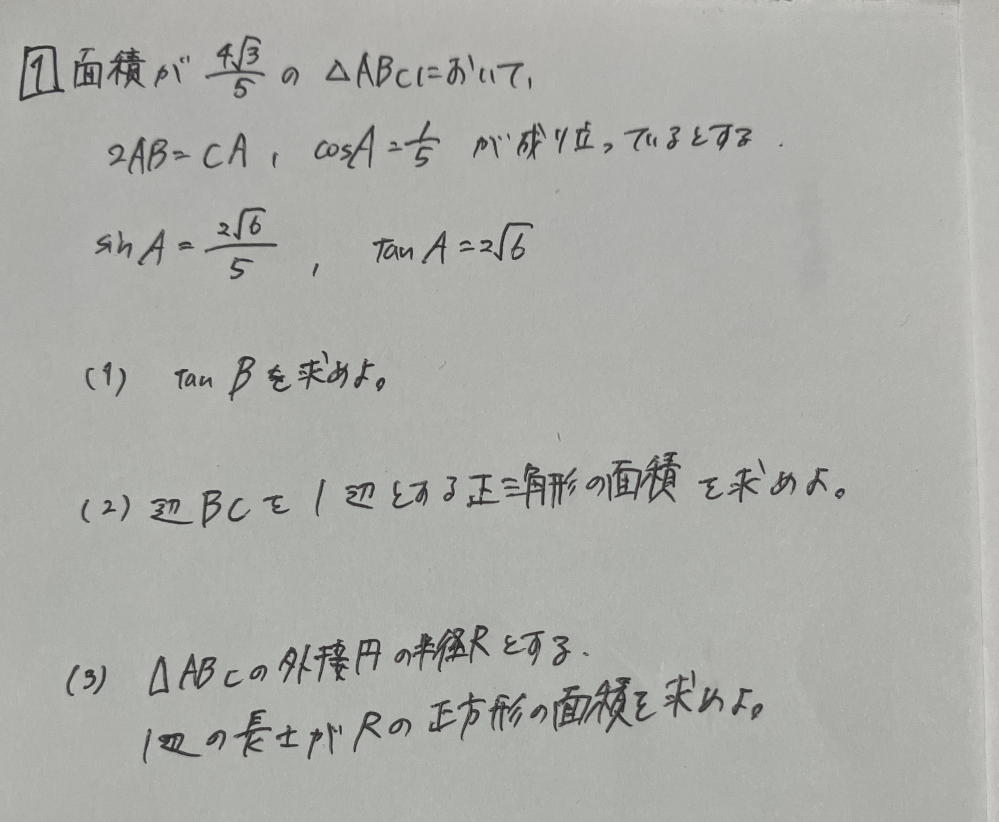 1 面積が 4√3/5 の △ABCにおいて,
2AB=CA, cosA=1/5 が成り立っているとする.
sin A = 2√6/5, tan A = 2√6
(1) tan Bを求めよ。
(2) 辺BCを1辺とする正三角形の面積を求めよ。
(3) △ABCの外接円の半径Rとする.
1辺の長さがRの正方形の面積を求めよ。